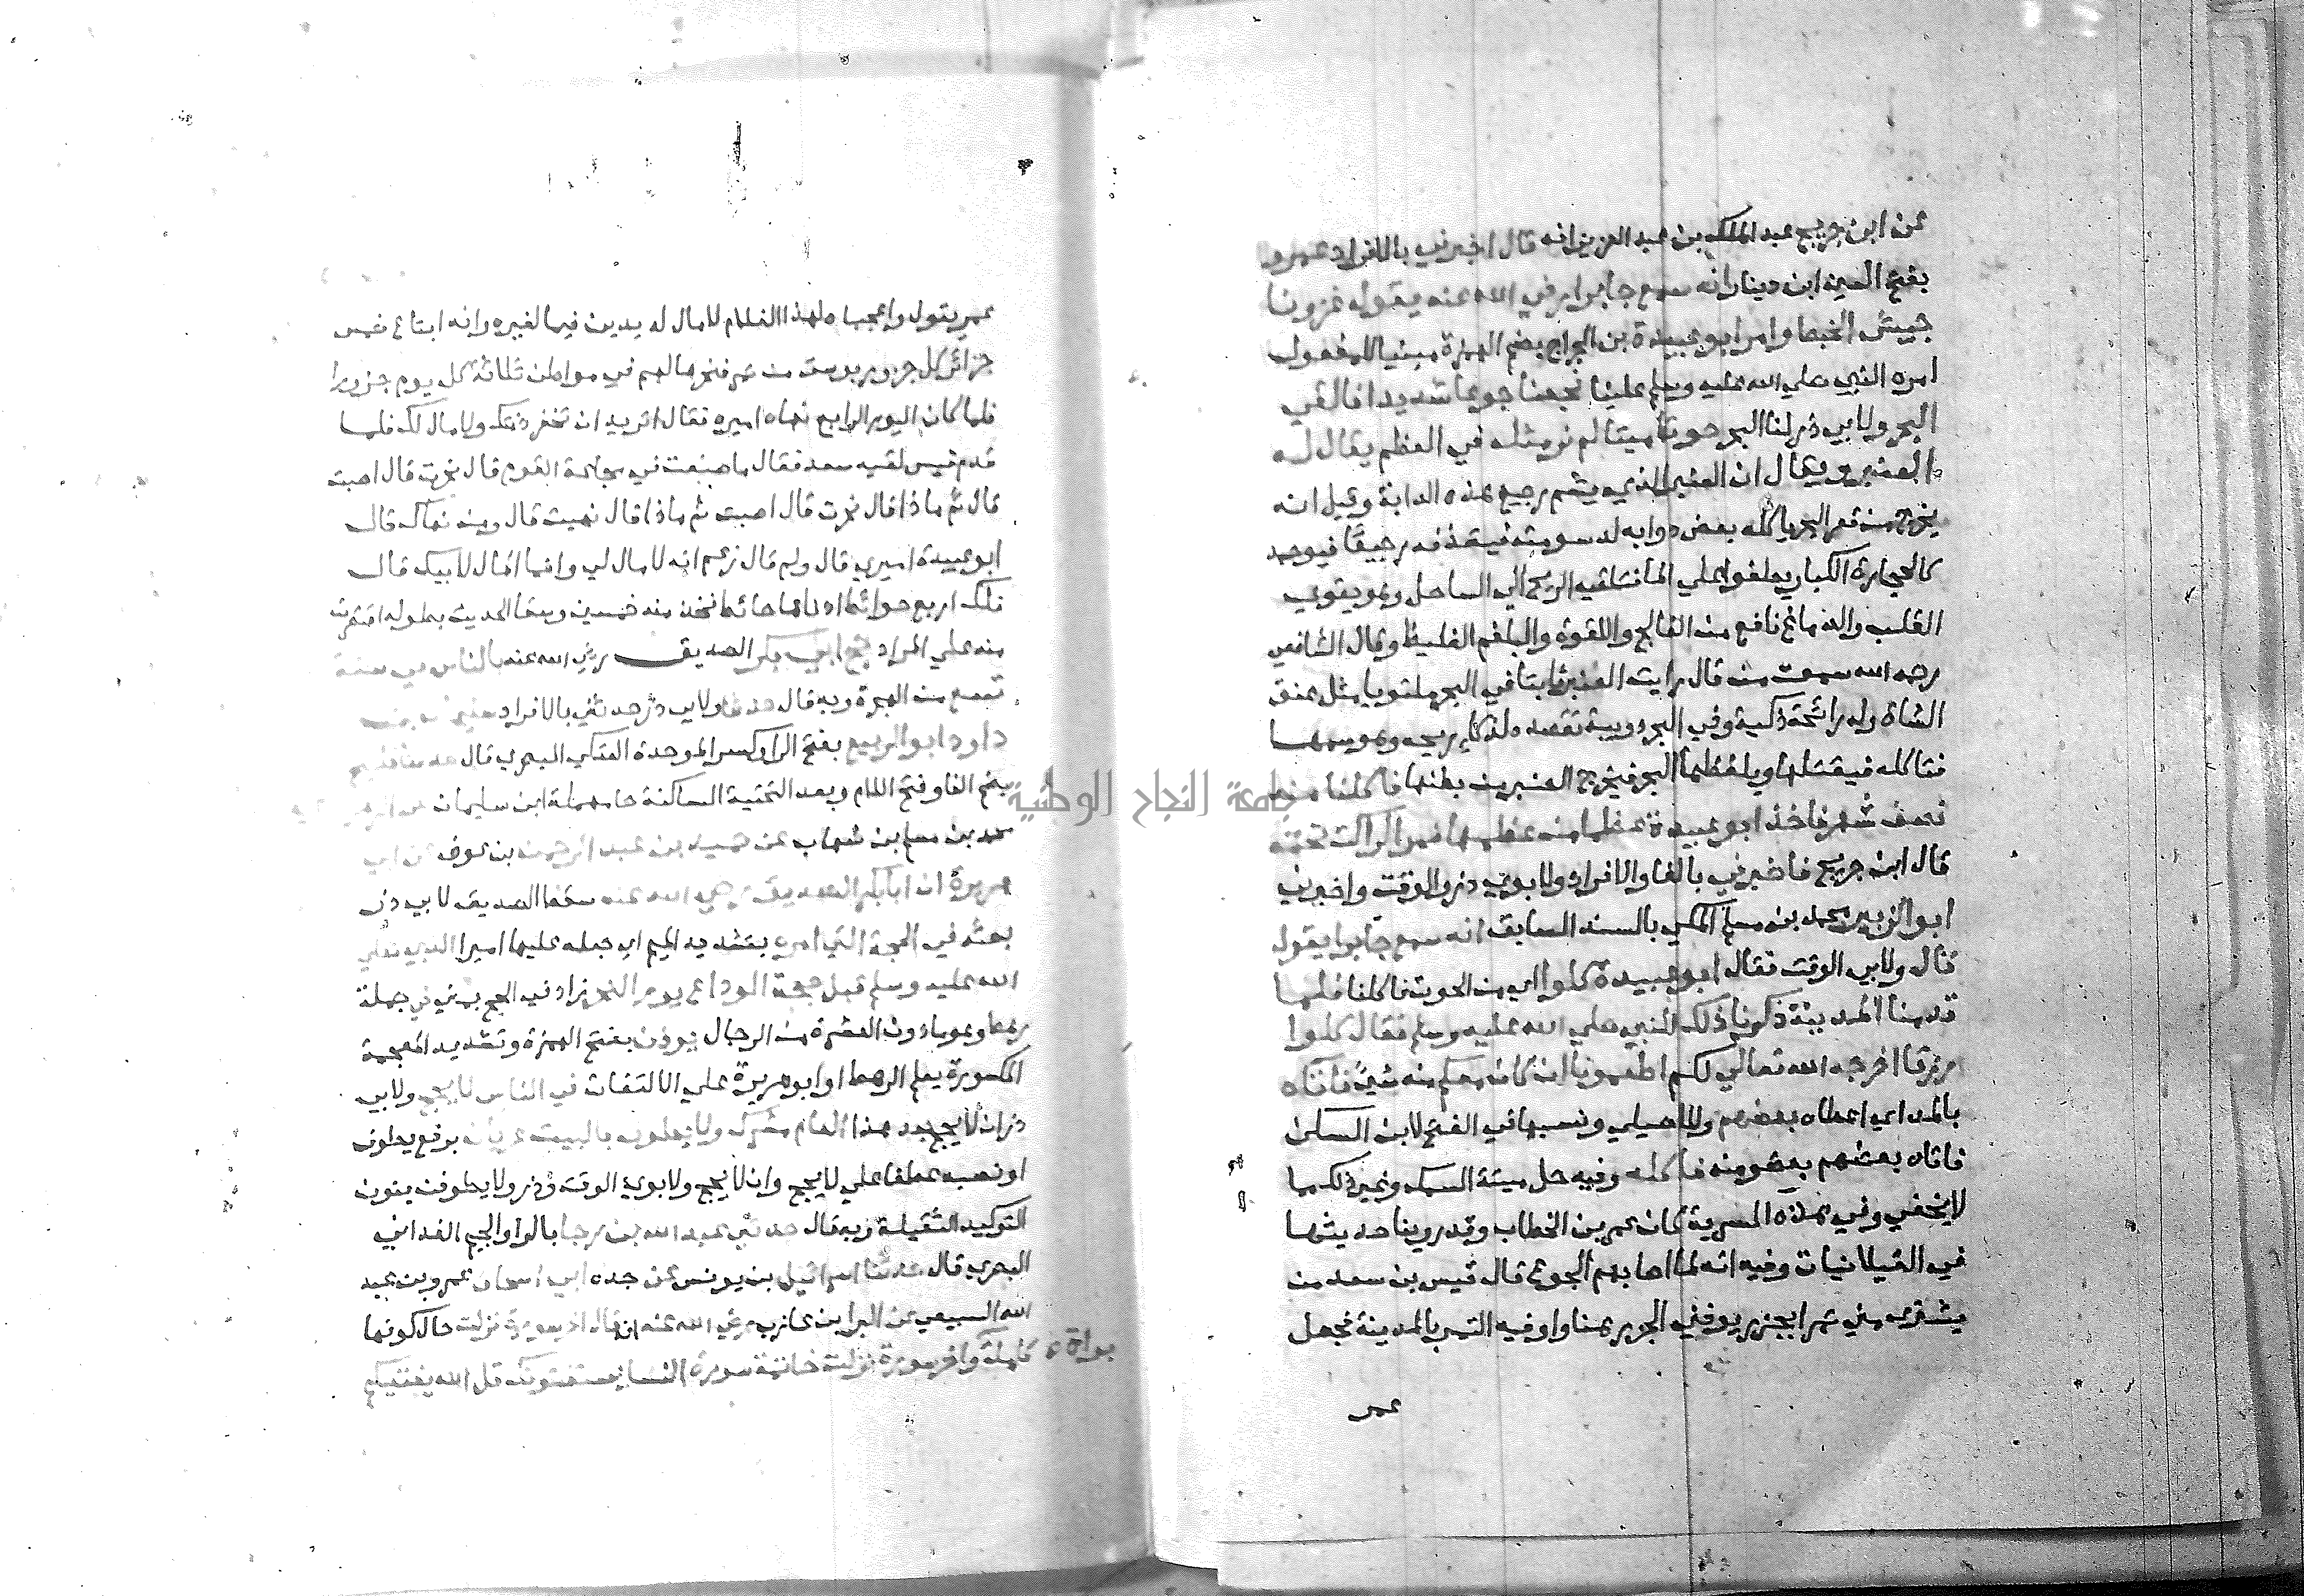 عن ابن جريج عبد الملك بن عبد العزيز انه قال اخبرني بالافراد عمرو
بفتح العين ابن دينار انه سمع جابرا رضي الله عنه يقول غزونا
جيش الخبط وامر ابو عبيدة بن الجراح بضم الهمزة مبنيا للمفعول
امره النبي صلي الله عليه وسلم علينا فجعنا جوعا شديدا فالقي
البحر ولابي ذر لنا البحر حوتا ميتا لم نر مثله في العظم يقال له
العنبر ويقال ان العنبر الذي يشم رجيع هذه الدابة وقيل انه
يخرج من قعر البحر ياكله بعض دوابه لدسومته فيقذفه رجيعا فيوجد
كالحجارة الكبار يطفوا علي الما فتلقيه الريح الي الساحل وهو يقوي
القلب والدماغ نافع من الفالج واللقوة والبلغم الغليظ وقال الشافعي
رحمه الله سمعت من قال رايت العنبر نابتا في البحر ملتويا مثل عنق
الشاة وله رائحة ذكية وفي البحر دويبة تقصده لذكاء ريحه وهو سمها
فتاكله فيقتلها ويلفظها البحر فيخرج العنبر من بطنها فاكلنا منه
نصف شهر فاخذ ابو عبيدة عظما من عظمها فمر الراكب تحته
قال ابن جريج فاخبرني بالفا والافراد ولابوي ذر والوقت واخبرني
ابو الزبير محمد بن مسلم المكي بالسند السابق انه سمع جابرا يقول
قال ولابي الوقت فقال ابو عبيدة كلوا اي من الحوت فاكلنا فلما
قدمنا المدينة ذكرنا ذلك للنبي صلي الله عليه وسلم فقال كلوا
رزقا اخرجه الله تعالي لكم اطعمونا ان كان معكم منه شيء فاتاه
بالمد اي اعطاه بعضهم وللاصيلي ونسبها في الفتح لابن السكن
فاتاه بعضهم بعضو منه فاكله وفيه حل ميتة السمك وغير ذلك مما
لا يخفي وفي هذه السرية كان عمر بن الخطاب وقد روينا حديثها
في الغيلانيات وفيه انه لما اصابهم الجوع قال قيس بن سعد من
يشتري مني تمرا بجزر يوفني الجزر هنا واوفيه التمر بالمدينة فجعل
عمر
عمر يقول واعجباه لهذا الغلام لا مال له يدين فيما لغيره وانه ابتاع خمس
جزائر كل جزور بوسق من تمر فنحرها لهم في مواطن ثلاثة كل يوم جزورا
فلما كان اليوم الرابع نهاه اميره فقال اتريد ان تخفر ذمتك ولا مال لك فلما
قدم قيس لقيه سعد فقال ما صنعت في مجاعة القوم قال نحرت قال اصبت
قال ثم ماذا قال نحرت قال اصبت ثم ماذا قال نهيت قال ومن نهاك قال
ابو عبيدة اميري قال ولم قال زعم انه لا مال لي وانما المال لابيك قال
فلك اربع حوائط ادناها حائط تجد منه خمسين وسقا الحديث بطوله اقتصرت
منه علي المراد حج ابي بكر الصديق رضي الله عنه بالناس في سنة
تسع من الهجرة وبه قال حدثنا ولابي ذر حدثني بالافراد سليمان بن
داود ابو الربيع بفتح الرا وكسر الموحدة العتكي البصري قال حدثنا فليح
بضم الفا وفتح اللام وبعد التحتية الساكنة حا مهملة ابن سليمان عن الزهري
محمد بن مسلم بن شهاب عن حميد بن عبد الرحمن بن عوف عن ابي
هريرة ان ابا بكر الصديق رضي الله عنه سقط الصديق لابي ذر
بعثه في الحجة التي امره بتشديد الميم اي جعله عليها اميرا النبي صلي
الله عليه وسلم قبل حجة الوداع يوم النحر زاد في الحج بمني في جملة
رهط وهو ما دون العشرة من الرجال يوذن بفتح الهمزة وتشديد المعجمة
المكسورة يعلم الرهط او ابو هريرة علي الالتفات في الناس لا يحج ولابي
ذر ان لا يحج بعد هذا العام مشرك ولا يطوف بالبيت عريان برفع يطوف
او نصبه عطفا علي لا يحج وان لا يحج ولابوي الوقت وذر ولا يطوفن بنون
التوكيد الثقيلة وبه قال حدثني عبد الله بن رجا بالرا والجيم الغداني
البصري قال حدثنا اسرائيل بن يونس عن جده ابي اسحاق عمرو بن عبيد
الله السبيعي عن البرا بن عازب رضي الله عنه انه قال اخر سورة نزلت حال كونها
كاملة براة واخر سورة نزلت خاتمة سورة النسا يستفتونك قل الله يفتيكم
جامعة النجاح الوطنية